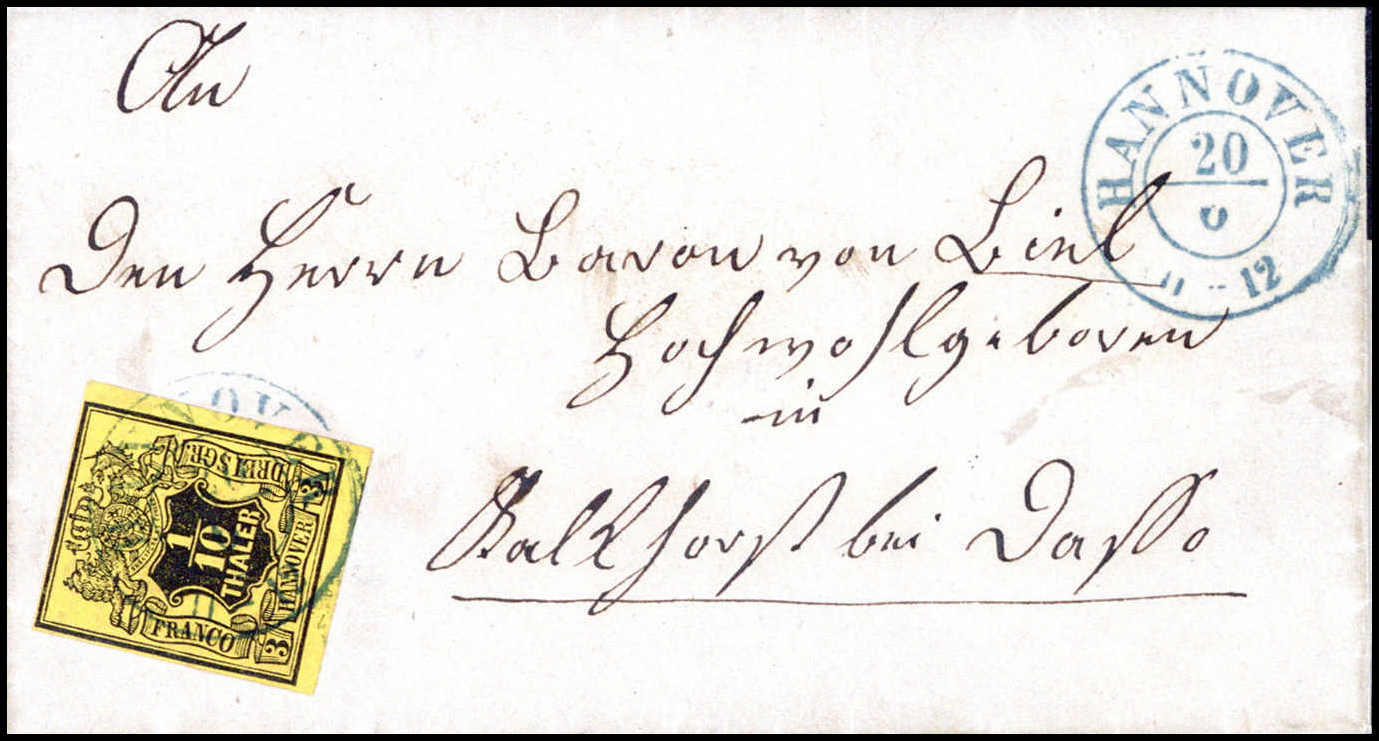 An
Den Herrn Baron von Biel
Hochwohlgeboren
in
Kalkhorst bei Dasso
HANNOVER
20
12
DREI SGR.
1/10
THALER
HANNOVER
FRANCO
3
3